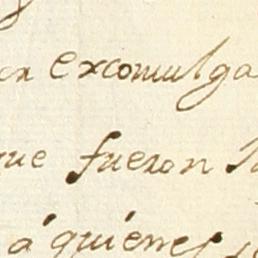 en excomulga
que fueron
á quienes